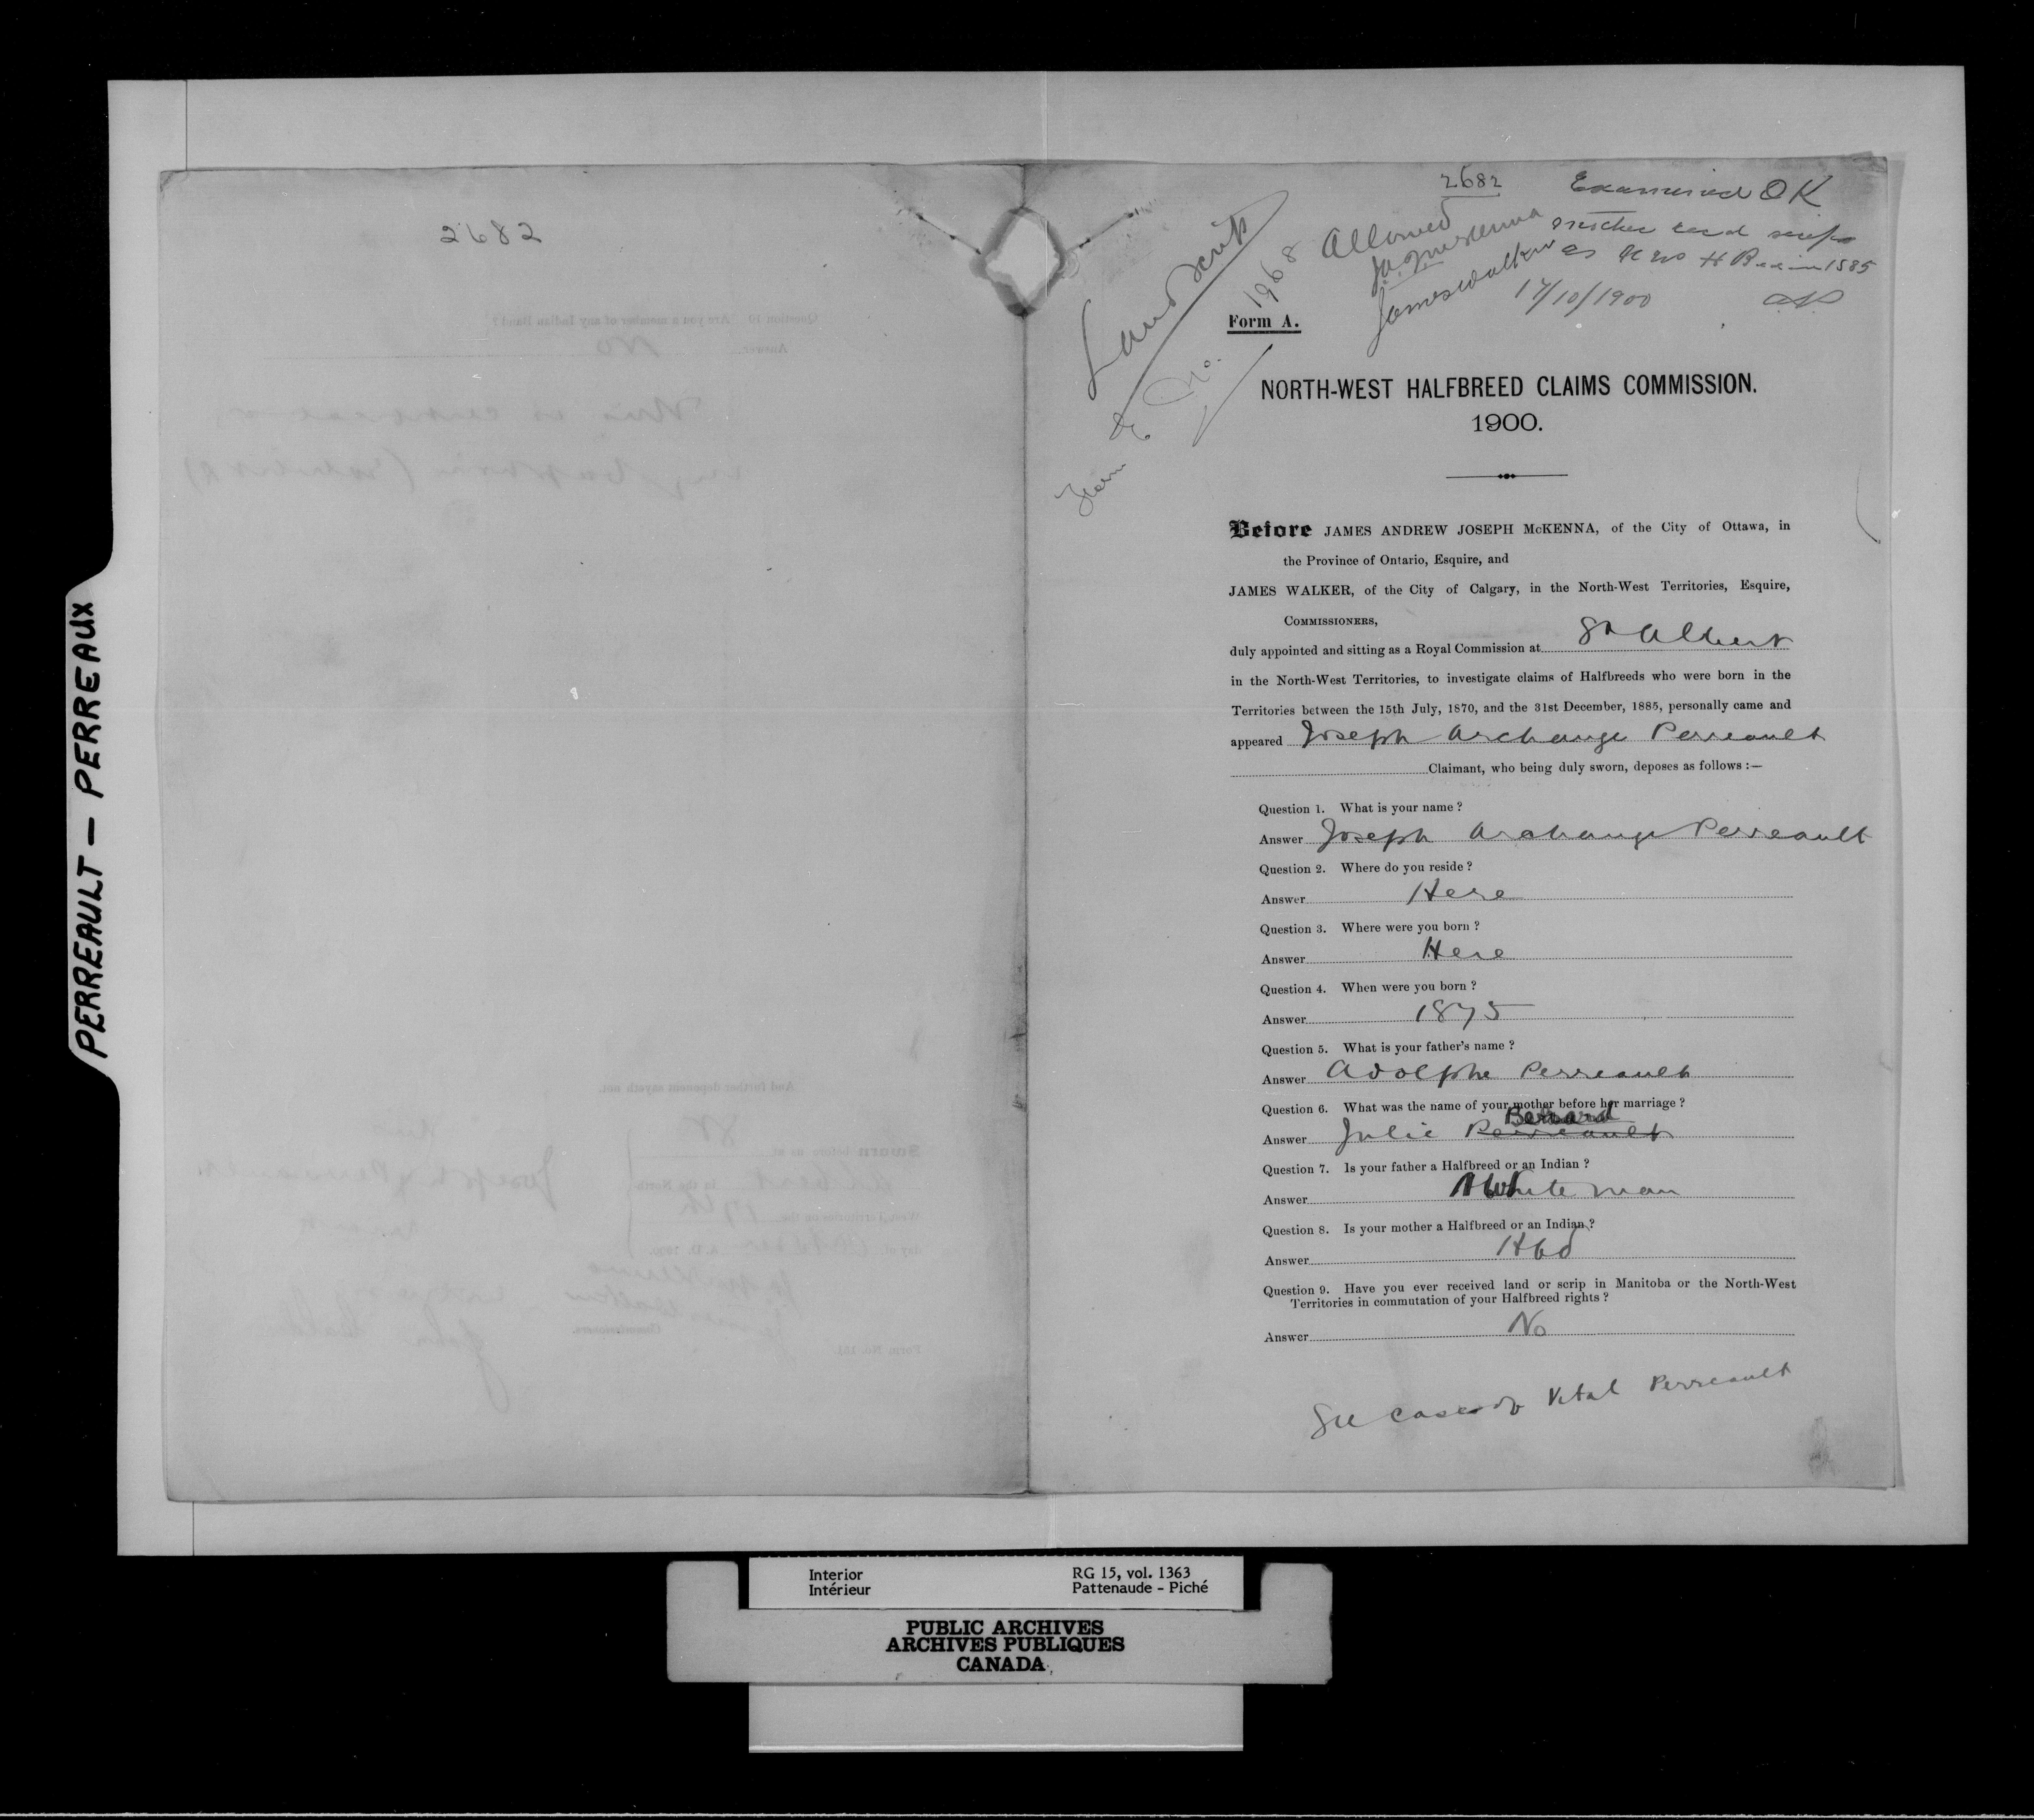 PERREAULT — PERREAUX
2682
2682
Examined OK
Land scrip
Allowed
mother recd scrip
JAJ McKenna
James Walker
as N W H B in 1885
17/10/1900
1968
Form A.
Form E No.
NORTH-WEST HALFBREED CLAIMS COMMISSION.
1900.
Before JAMES ANDREW JOSEPH McKENNA, of the City of Ottawa, in
the Province of Ontario, Esquire, and
JAMES WALKER, of the City of Calgary, in the North-West Territories, Esquire,
COMMISSIONERS,
duly appointed and sitting as a Royal Commission at St Albert
in the North-West Territories, to investigate claims of Halfbreeds who were born in the
Territories between the 15th July, 1870, and the 31st December, 1885, personally came and
appeared Joseph Archange Perreault
Claimant, who being duly sworn, deposes as follows :—
Question 1. What is your name ?
Answer Joseph Archange Perreault
Question 2. Where do you reside ?
Answer Here
Question 3. Where were you born ?
Answer Here
Question 4. When were you born ?
Answer 1875
Question 5. What is your father's name ?
Answer Adolphe Perreault
Question 6. What was the name of your mother before her marriage ?
Berard
Answer Julie Perreault
Question 7. Is your father a Halfbreed or an Indian ?
Answer White man
Question 8. Is your mother a Halfbreed or an Indian ?
Answer Hbd
Question 9. Have you ever received land or scrip in Manitoba or the North-West
Territories in commutation of your Halfbreed rights ?
Answer No
See case of Vital Perreault
Interior
Intérieur
RG 15, vol. 1363
Pattenaude - Piché
PUBLIC ARCHIVES
ARCHIVES PUBLIQUES
CANADA